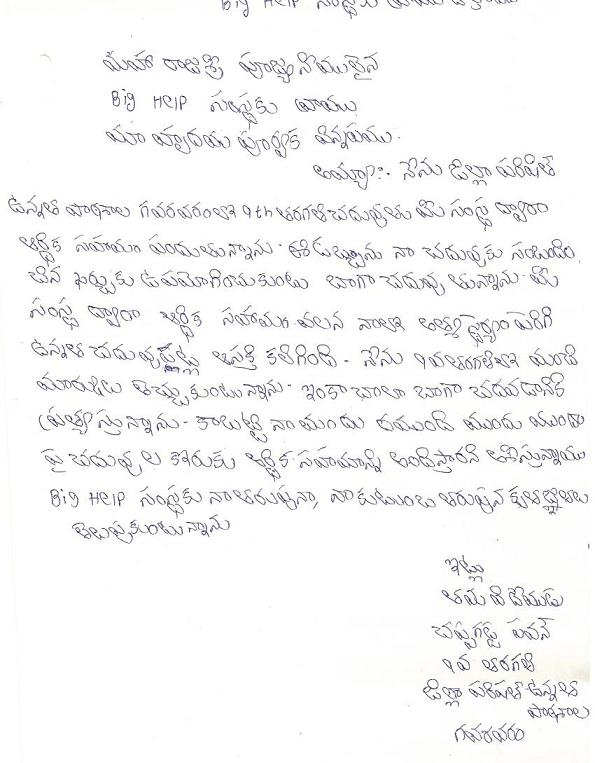 Big HELP సంస్థకు
మహా రాజశ్రీ పూజ్యనీయులైన
Big HELP సంస్థకు వ్రాయు
మా హృదయ పూర్వక విన్నపము.
అయ్యా:- నేను జిల్లా పరిషత్
ఉన్నత పాఠశాల గవరవరంలో 9th తరగతి చదువుతూ మీ సంస్థ ద్వారా
ఆర్థిక సహాయం పొందుతున్నాను. ఈ డబ్బును నా చదువుకు సంబందిం
చిన ఖర్చుకు ఉపయోగించుకుంటు బాగా చదువు తున్నాను. మీ
సంస్థ ద్వారా ఆర్థిక సహాయం వలన నాలో ఆత్మ స్థైర్యం పెరిగి
ఉన్నత చదువులపట్ల ఆసక్తి కలిగింది. నేను 9వ తరగతిలో మంచి
మార్కులు తెచ్చుకుంటున్నాను. ఇంకా చాలా బాగా చదవడానికి
ప్రయత్నిస్తున్నాను. కాబట్టి నాయందు దయఉంచి ముందు ముందు
పై చదువుల కొరకు ఆర్థిక సహాయాన్ని అందిస్తారని ఆశిస్తున్నాము
Big HELP సంస్థకు నా తరుపునా, నా కుటుంబ తరుపున కృతజ్ఞతలు
తెలుపుకుంటున్నాను
ఇట్లు
తమ విదేయుడు
చప్పగట్ట పవన్
9వ తరగతి
జిల్లా పరిషత్ ఉన్నత
పాఠశాల
గవరవరం